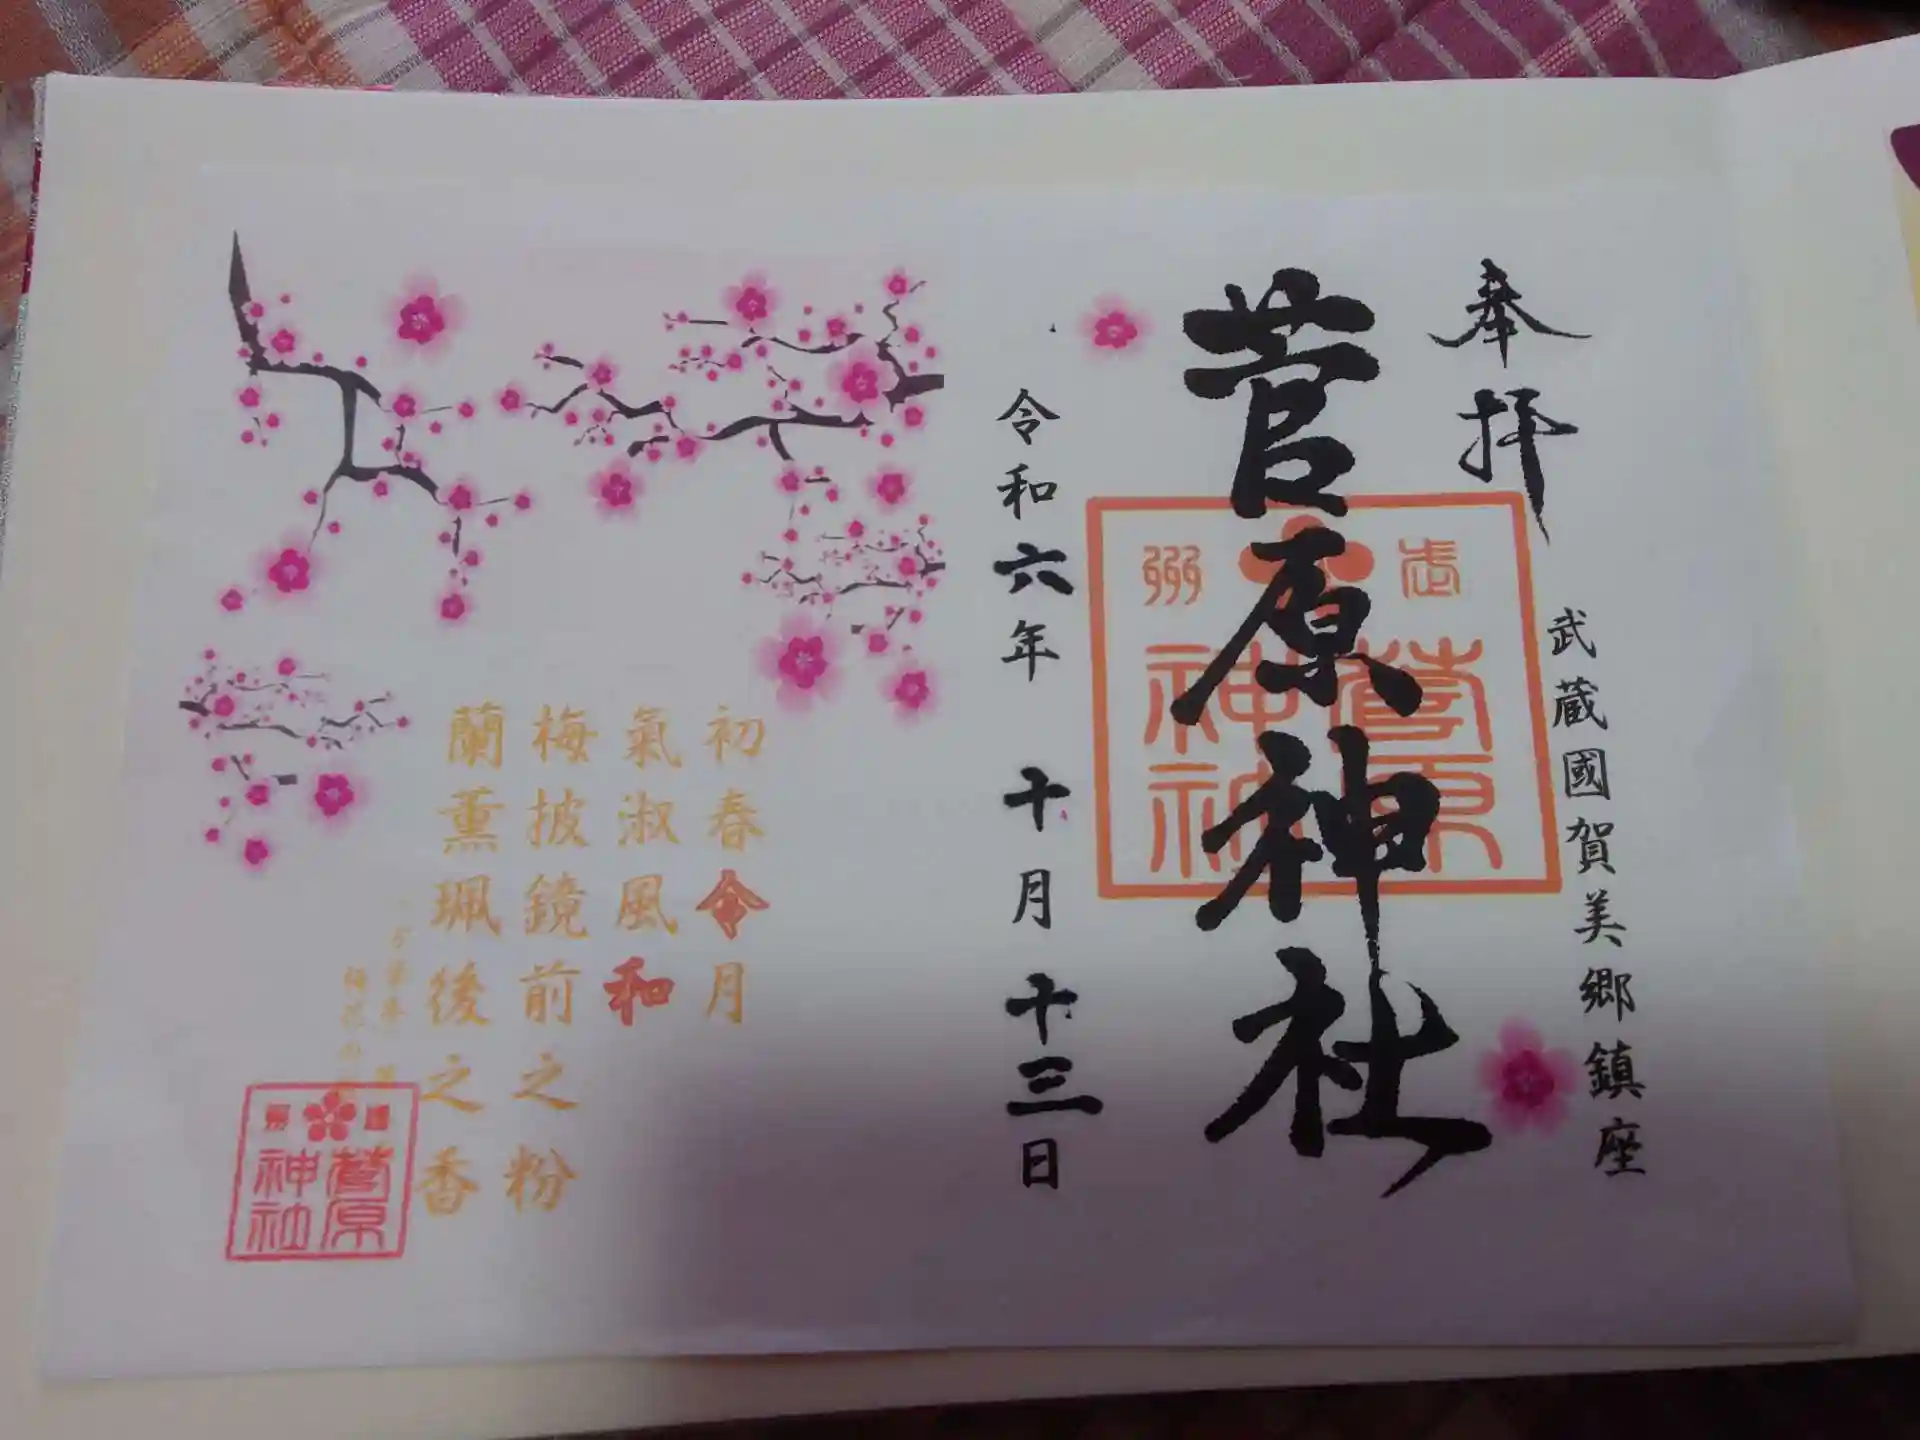 奉拝
武蔵國賀美郷鎮座
菅原神社
菅原
神社
令和六年 十月 十三日
初春令月
氣淑風和
梅披鏡前之粉
蘭薫珮後之香
菅原
神社